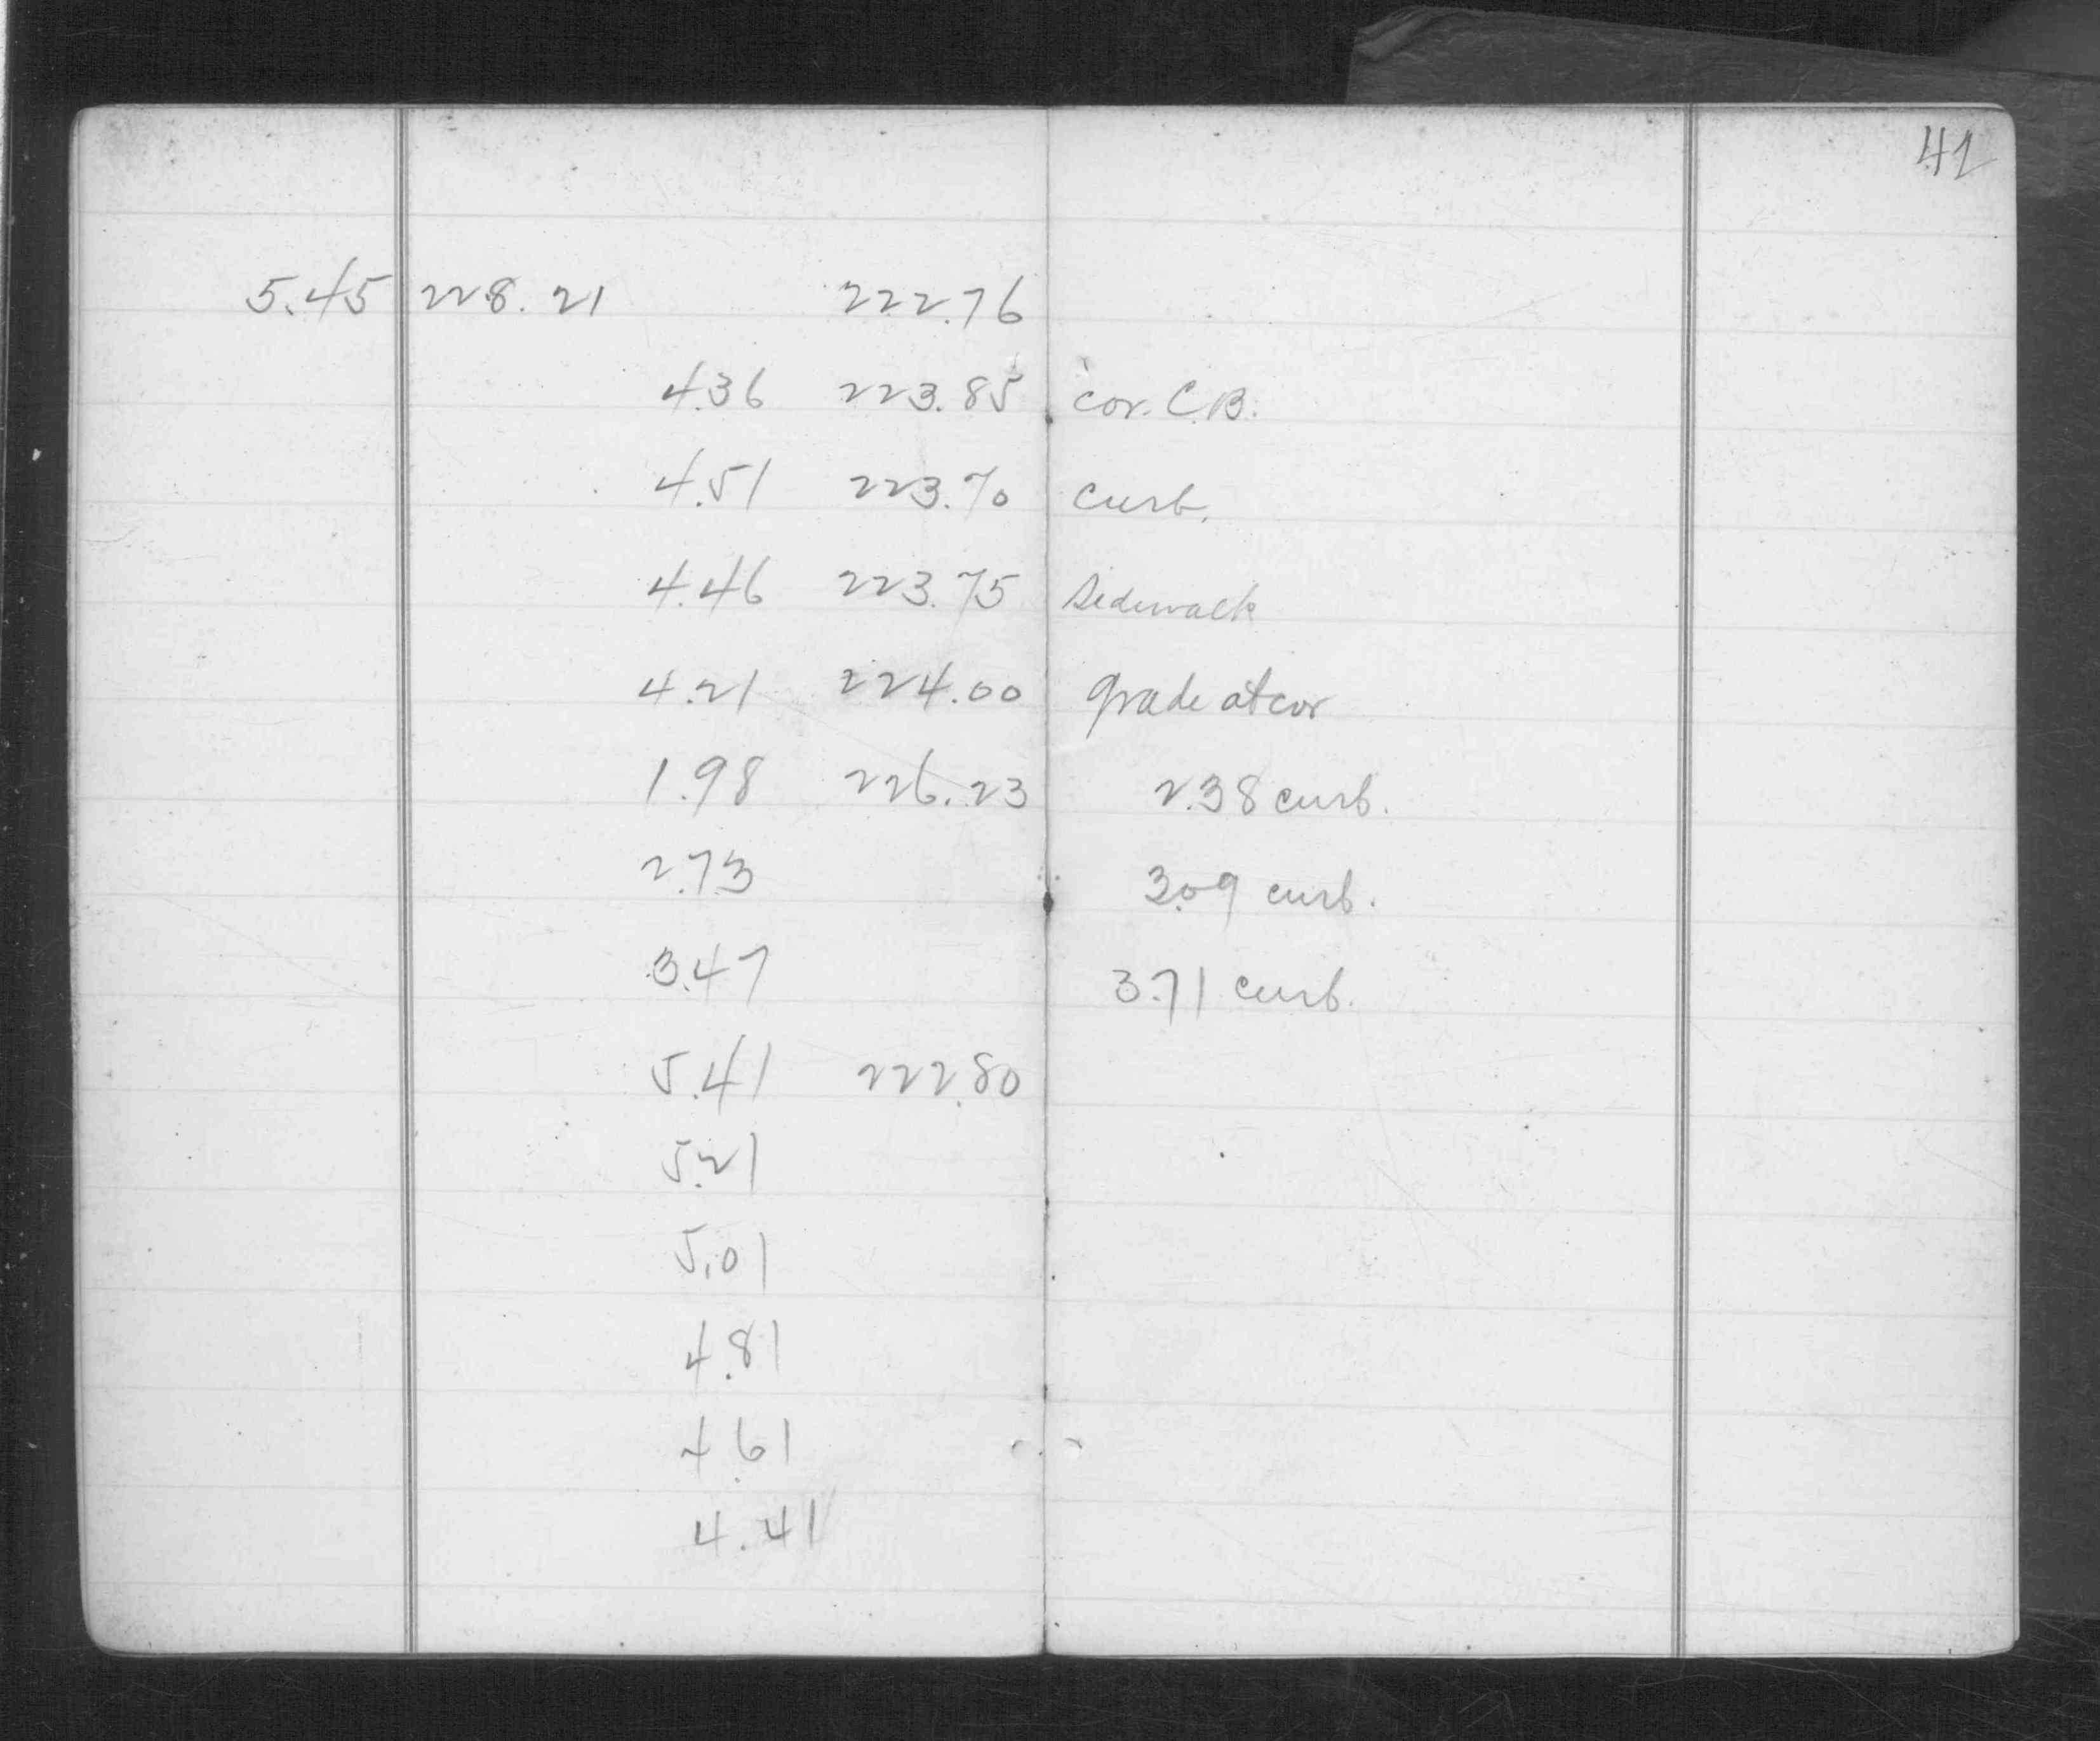 41
5.45 228.21 222.76
4.36 223.85 cor. C.B.
4.51 223.70 curb.
4.46 223.75 Sidewalk
4.21 224.00 grade at cor
1.98 226.23 2.38 curb.
2.73 3.09 curb.
3.47 3.71 curb.
5.41 222.80
5.21
5.01
4.81
4.61
4.41